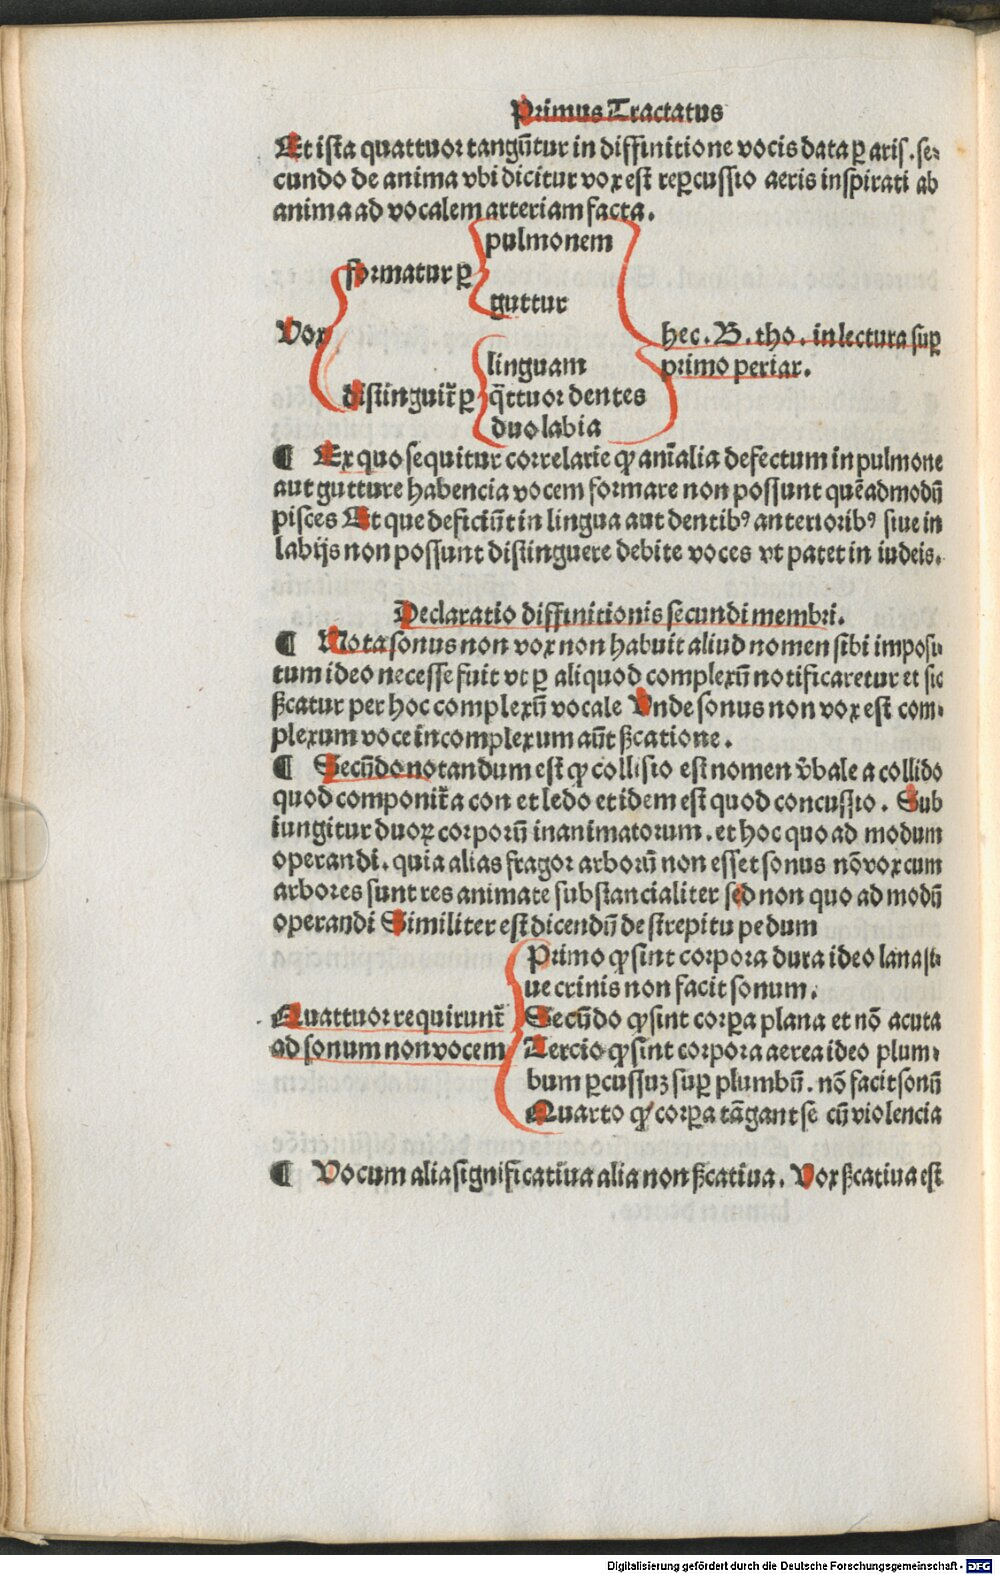 Primus Tractatus
Et ista quattuor tangūtur in diffinitione vocis data ꝑ aris. se⸗
cundo de anima vbi dicitur vox est reꝑcussio aeris inspirati ab
anima ad vocalem arteriam facta.
pulmonem
formatur ꝑ
guttur
Vox
hec. B. tho. in lectura suꝑ
linguam
primo periar.
distinguit̃ ꝑ
q̄ttuor dentes
duo labia
¶ Ex quo sequitur correlarie ꝙ anīalia defectum in pulmone
aut gutture habencia vocem formare non possunt quēadmodū
pisces Et que deficiūt in lingua aut dentibꝰ anterioribꝰ siue in
labijs non possunt distinguere debite voces vt patet in iudeis.
Declaratio diffinitionis secundi membri.
¶ Nota sonus non vox non habuit aliud nomen sibi imposi
tum ideo necesse fuit vt ꝑ aliquod complexū notificaretur et sic
ẞcatur per hoc complexū vocale Vnde sonus non vox est com⸗
plexum voce incomplexum aūt ẞcatione.
¶ Secūdo notandum est ꝙ collisio est nomen v̄bale a collido
quod componit̃ a con et ledo et idem est quod concussio. Sub
iungitur duoꝝ corporū inanimatorum. et hoc quo ad modum
operandi. quia alias fragor arborū non esset sonus nō vox cum
arbores sunt res animate substancialiter sed non quo ad modū
operandi Similiter est dicendū de strepitu pedum
Primo ꝙ sint corpora dura ideo lana si⸗
ue crinis non facit sonum.
Quattuor requirunt̃
Secūdo ꝙ sint corꝑa plana et nō acuta
ad sonum non vocem
Tercio ꝙ sint corpora aerea ideo plum⸗
bum ꝑcussuꝫ suꝑ plumbū. nō facit sonū
Quarto ꝙ corꝑa tāgant se cū violencia
¶ Vocum alia significatiua alia non ẞcatiua. Vox ẞcatiua est
Digitalisierung gefördert durch die Deutsche Forschungsgemeinschaft - DFG